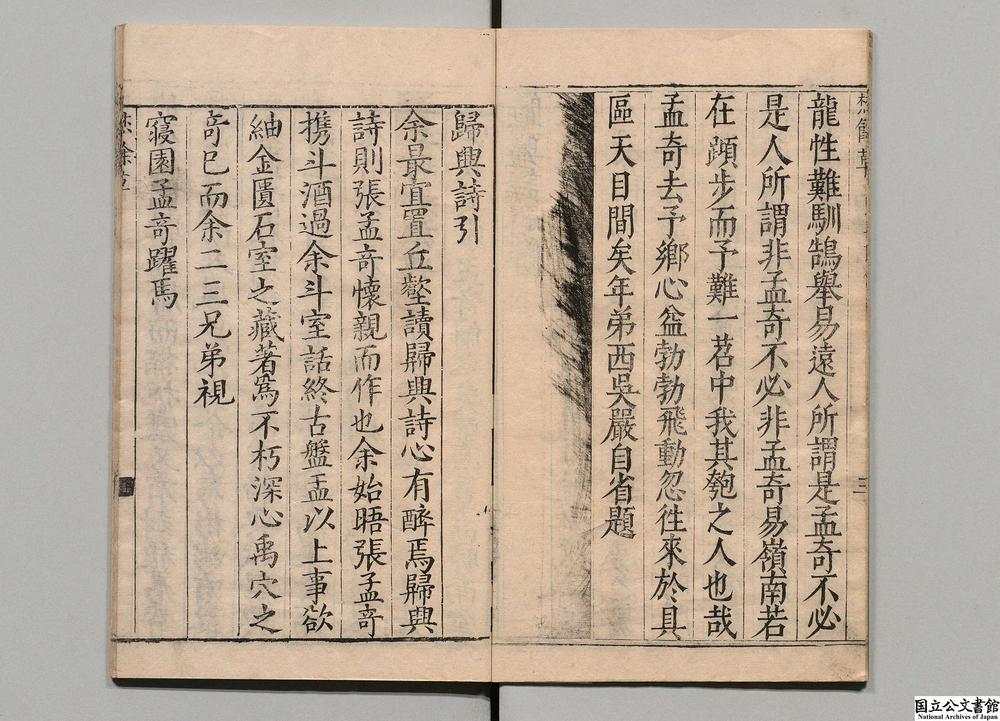 龍性難馴鵠舉易遠人所謂是孟奇不必
是人所謂非孟奇不必非孟奇易嶺南若
在蹞步而予難一苕中我其匏之人也哉
孟奇去予鄉心益勃勃飛動忽徃來於具
區天目間矣年弟西吳嚴自省題
三
歸興詩引
余最宜置丘壑讀歸興詩心有醉焉歸興
詩則張孟奇懷親而作也余始晤張孟奇
携斗酒過余斗室話終古盤盂以上事欲
紬金匱石室之藏著爲不朽深心禹穴之
奇已而余二三兄弟視
寢園孟奇躍馬
国立公文書館
National Archives of Japan